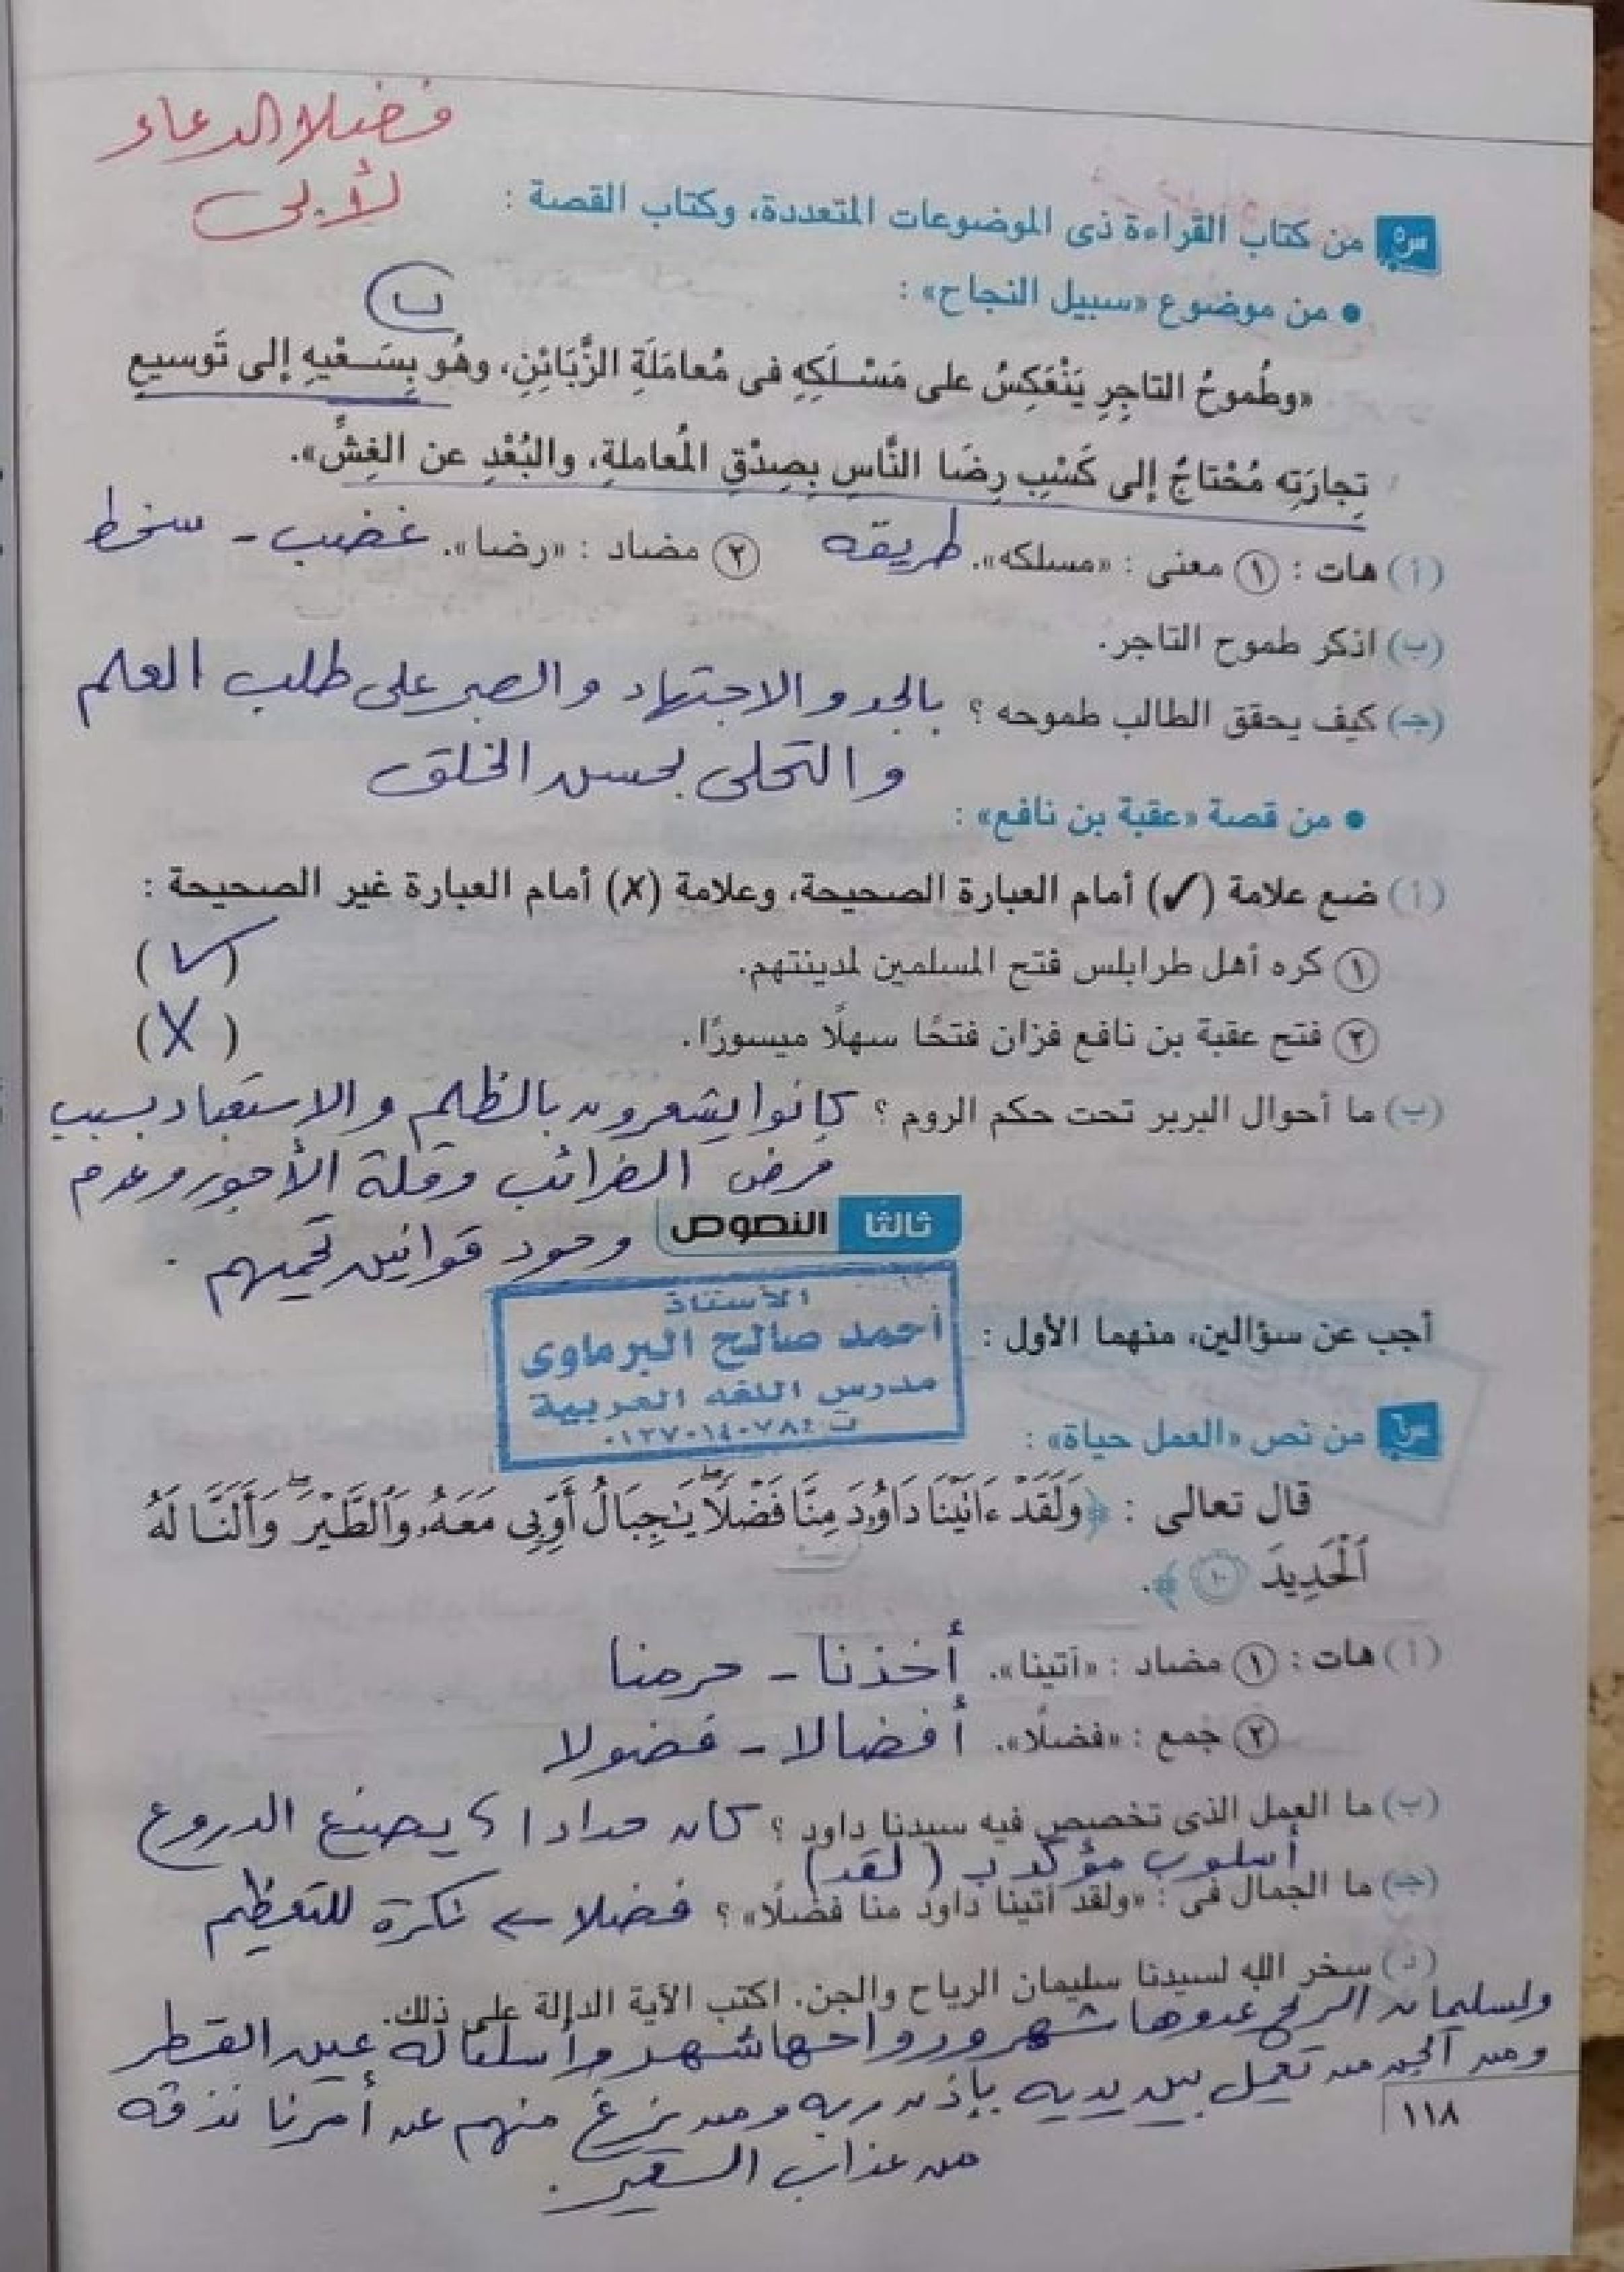 فضلا الدعاء
لأبى
س٥ من كتاب القراءة ذى الموضوعات المتعددة، وكتاب القصة :
• من موضوع «سبيل النجاح» :
ب
«وطُموحُ التاجِرِ يَنْعَكِسُ على مَسْلَكِهِ فى مُعامَلَةِ الزَّبَائِنِ، وهُو بِسَعْيِهِ إلى تَوسيعِ
تِجارَتِه مُحْتاجٌ إلى كَسْبِ رِضَا النَّاسِ بِصِدْقِ المُعاملةِ، والبُعْدِ عن الغِشِّ».
(أ) هات : ١ معنى : «مسلكه». طريقه ٢ مضاد : «رضا». غضب - سخط
(ب) اذكر طموح التاجر.
(جـ) كيف يحقق الطالب طموحه ؟ بالجد والاجتهاد والصبر على طلب العلم
والتحلى بحسن الخلق
• من قصة «عقبة بن نافع» :
(أ) ضع علامة (✓) أمام العبارة الصحيحة، وعلامة (✗) أمام العبارة غير الصحيحة :
١ كره أهل طرابلس فتح المسلمين لمدينتهم. (✓)
٢ فتح عقبة بن نافع فزان فتحًا سهلًا ميسورًا. (X)
(ب) ما أحوال البربر تحت حكم الروم ؟ كانوا يشعرون بالظلم والاستعباد بسبب
فرض الضرائب وقلة الأجور وعدم
وجود قوانين تحميهم .
ثالثا النصوص
الأستاذ
أحمد صالح البرماوى
مدرس اللغه العربية
ت ٠١٢٧٠١٤٠٧٨٤
أجب عن سؤالين، منهما الأول :
من نص «العمل حياة» :
قال تعالى : ﴿وَلَقَدْ ءَاتَيْنَا دَاوُۥدَ مِنَّا فَضْلًا ۖ يَٰجِبَالُ أَوِّبِى مَعَهُۥ وَٱلطَّيْرَ ۖ وَأَلَنَّا لَهُ
ٱلْحَدِيدَ ١٠﴾.
(أ) هات : ١ مضاد : «آتينا». أخذنا - حرمنا
٢ جمع : «فضلًا». أفضالا - فضولا
(ب) ما العمل الذى تخصص فيه سيدنا داود ؟ كان حدادا يصنع الدروع
أسلوب مؤكد ب (لقد)
(جـ) ما الجمال فى : «ولقد آتينا داود منا فضلًا» ؟ فضلا ← نكرة للتعظيم
(د) سخر الله لسيدنا سليمان الرياح والجن. اكتب الآية الدالة على ذلك.
ولسليمان الريح غدوها شهر ورواحها شهر وأسلنا له عين القطر
ومن الجن من يعمل بين يديه بإذن ربه ومن يزغ منهم عن أمرنا نذقه
من عذاب السعير.
١١٨